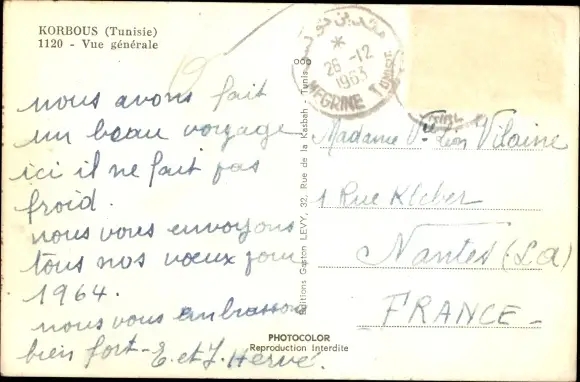 KORBOUS (Tunisie)
1120 - Vue générale
nous avons fait
un beau voyage
ici il ne fait pas
froid.
nous vous envoyons
tous nos vœux pour
1964.
nous vous embrassons
bien fort - E. et J. Hervé.
Editions Gaston LEVY, 32, Rue de la Kasbah - Tunis
PHOTOCOLOR
Reproduction Interdite
*
26 -12
1963
MEGRINE
Madame Vve Léon Vilaine
1 Rue Kleber
Nantes (L.A)
FRANCE -